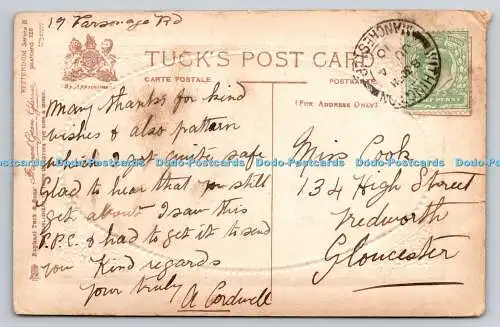 19 Parsonage Rd
TUCK'S POST CARD
CARTE POSTALE
POSTKARTE
By Appointment
(FOR ADDRESS ONLY)
Many thanks for kind
wishes & also pattern
which I got quite safe
Glad to hear that you still
get about I saw this
P.P.C. & had to get it to send
you Kind regards
your truly A Cordwell
Miss Cook
134 High Street
Tredworth
Gloucester
WITHINGTON
MANCHESTER
Raphael Tuck
Dodo-Postcards Dodo-Postcards Dodo-Postcards Dodo-Postcards